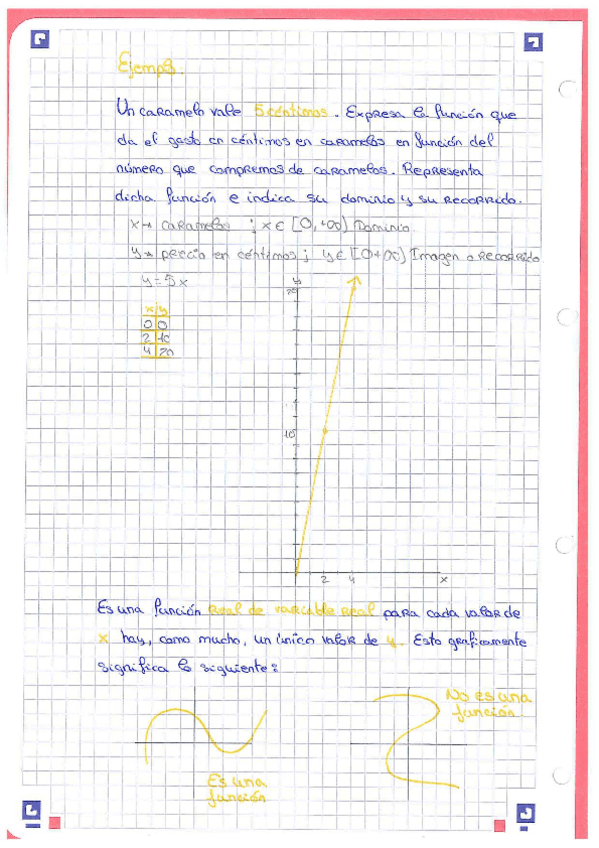 Ejemplo.
Un caramelo vale 5 céntimos. Expresa la función que
da el gasto en céntimos en caramelos en función del
número que compremos de caramelos. Representa
dicha función e indica su dominio y su recorrido.
x → caramelos ; x ∈ [0, +∞) Dominio
y → precio en céntimos ; y ∈ [0+∞) Imagen o recorrido
y = 5x
x y
0 0
2 10
4 20
y
20
10
2 4 x
Es una función real de variable real para cada valor de
x hay, como mucho, un único valor de y. Esto graficamente
significa lo siguiente:
No es una
función.
Es una
función